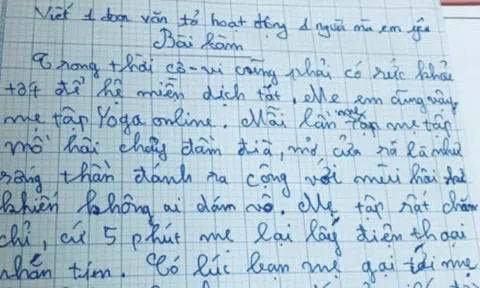 Viết 1 đoạn văn tả hoạt động 1 người mà em yêu
Bài làm
Trong thời cô-vi cũng phải có sức khỏe
tốt để hệ miễn dịch tốt. Mẹ em cũng vậy
mẹ tập Yoga online. Mỗi lần mẹ tập mẹ tập
mồ hôi chảy đầm đìa, mở cửa ra là như
thần đánh ra cộng với mùi hôi
khiến không ai dám vô. Mẹ tập rất chăm
chỉ, cứ 5 phút mẹ lại lấy điện thoại
nhắn tin. Có lúc bạn mẹ gọi tới mẹ